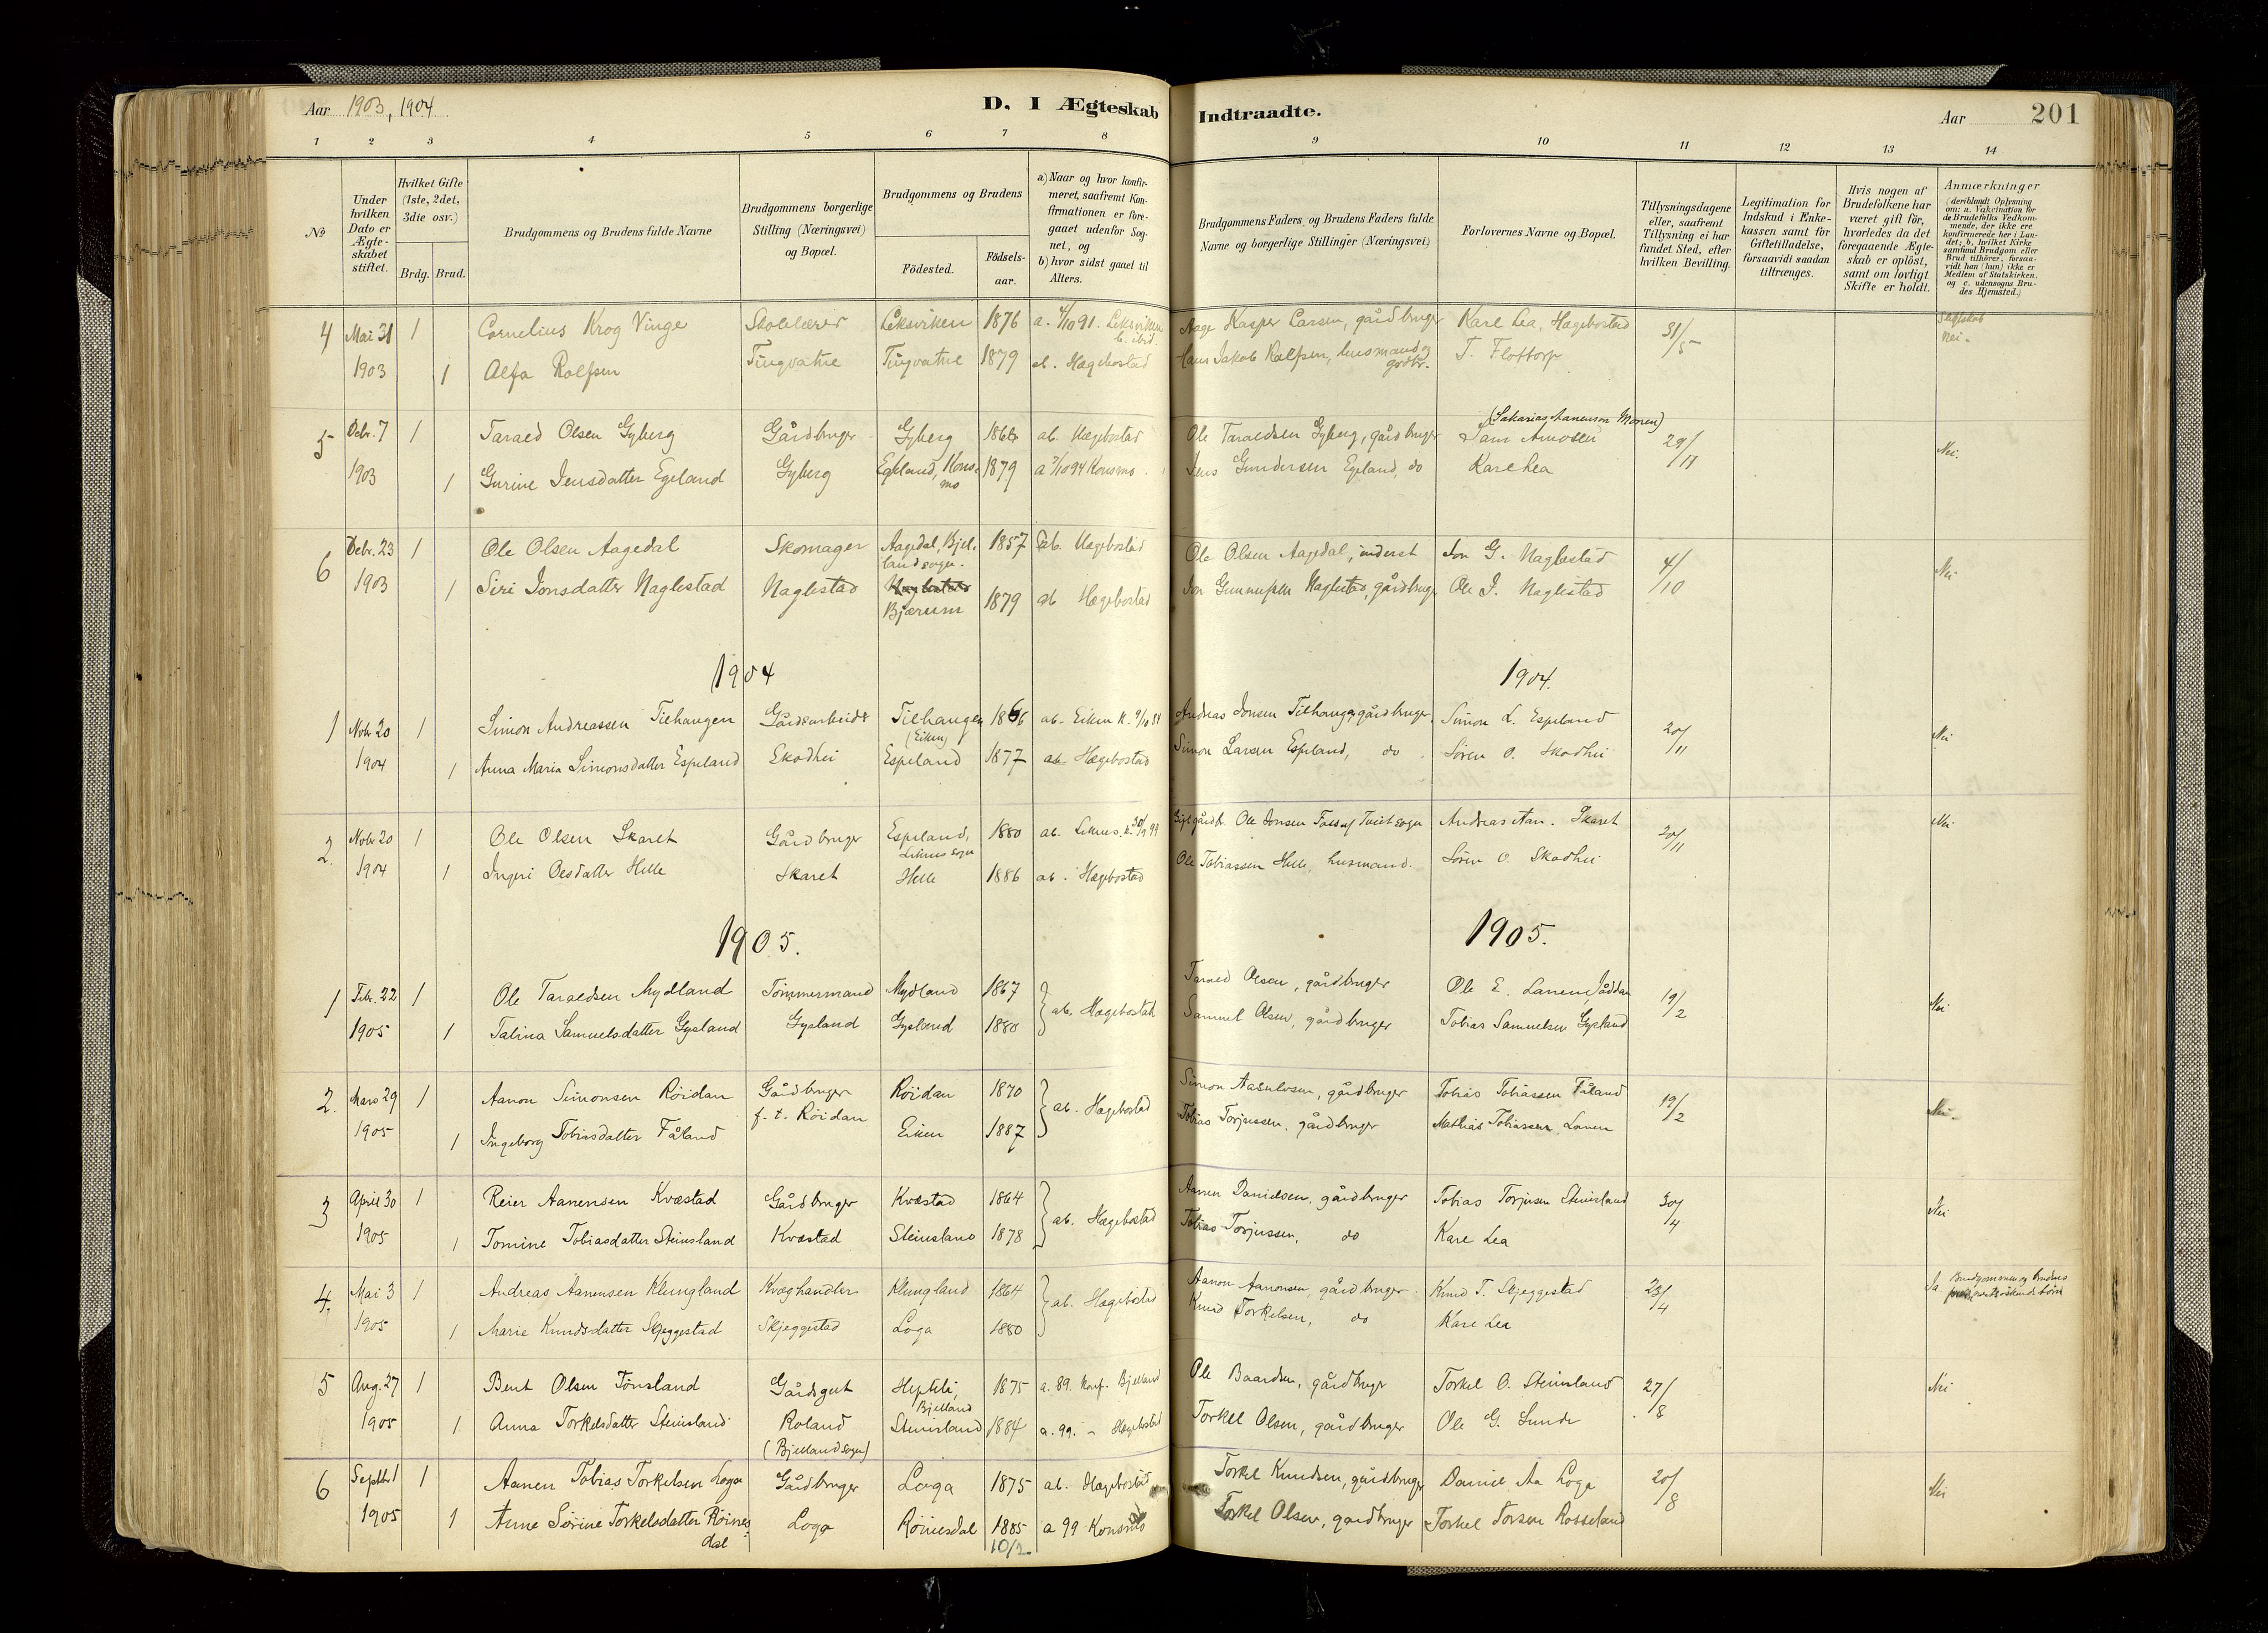 Aar 1903, 1904
D. I Ægteskab Indtraadte.
Aar
201
1 2 3 4 5 6 7 8 9 10 11 12 13 14
№
Under hvilken Dato er Ægteskabet stiftet.
Hvilket Gifte (1ste, 2det, 3die osv.)
Brdg. Brud.
Brudgommens og Brudens fulde Navne
Brudgommens borgerlige Stilling (Næringsvei) og Bopæl.
Brudgommens og Brudens
Födested.
Födsels-aar.
a) Naar og hvor konfirmeret, saafremt Konfirmationen er foregaaet udenfor Sognet, og
b) hvor sidst gaaet til Alters.
Brudgommens Faders og Brudens Faders fulde Navne og borgerlige Stillinger (Næringsvei)
Forlovernes Navne og Bopæl.
Tillysningsdagene eller, saafremt Tillysning ei har fundet Sted, efter hvilken Bevilling.
Legitimation for Indskud i Enkekassen samt for Giftetilladelse, forsaavidt saadan tiltrænges.
Hvis nogen af Brudefolkene har været gift för, hvorledes da det foregaaende Ægteskab er oplöst, samt om lovligt Skifte er holdt.
Anmærkninger (deriblandt Oplysning om: a. Vakcination for de Brudefolks Vedkommende, der ikke ere konfirmerede her i Landet; b. hvilket Kirkesamfund Brudgom eller Brud tilhörer, forsaavidt han (hun) ikke er Medlem af Statskirken, og c. udensogns Brudes Hjemsted.)
4 Mai 31 1 Cornelius Krog Vinge Skolelærer Leksviken 1876 a. 4/10 91. Leksviken b. ibid. Aage Kasper Larsen, gårdbruger Kare Lea, Hægebostad 31/5 Slegtskab Nei.
1903 1 Alfa Rolfsen Tingvatne Tingvatne 1879 ab. Hægebostad Hans Jakob Rolfsen, husmand og T. Flottorp
5 Debr. 7 1 Tarald Olsen Gyberg Gårdbruger Gyberg ab. Hægebostad Ole Taraldsen Gyberg, gårdbruger (Sakarias Aanenson Monen) 29/11 Nei.
1903 1 Gurine Jensdatter Egeland Gyberg Egeland, Konsmo 1879 a 7/10 94 Konsmo Jens Gundersen Egeland, do Kare Lea
6 Debr. 23 1 Ole Olsen Aagedal Skomager Aagedal, Bjellandsogn. 1857 ab. Hægebostad Ole Olsen Aagedal, inderst Jon G. Naglestad 4/10 Nei
1903 1 Siri Jonsdatter Naglestad Naglestad Bjærum 1879 ab Hægebostad Jon Gunnufsen Naglestad, gårdbruger Ole J. Naglestad
1904
1904.
1 Nobr 20 1 Simon Andreassen Tilhaugen Gårdsarbeider Tilhaugen (Eiken) 1866 ab. Eiken K. 9/10 84 Andreas Jonsen Tilhaugen gårdbruger Simon L. Espeland 20/11 Nei
1904 1 Anna Maria Simonsdatter Espeland Skodhei Espeland 1877 ab Hægebostad Simon Larsen Espeland, do Søren O. Skodhei
2. Nobr 20 1 Ole Olsen Skaret Gårdbruger Espeland, Liknes sogn 1880 ab. Liknes Ole Jonsen Andreas Aan. Skaret 20/11 Nei
1904 1 Ingeri Olesdatter Helle Skaret Helle 1886 ab. Hægebostad Ole Tobiassen Helle, husmand. Søren O. Skodhei
1905.
1905.
1 Febr. 22 1 Ole Taraldsen Mydland Tømmermand Mydland 1867 ab. Hægebostad Tarald Olsen, gårdbruger Ole E. Lanen, 19/2 Nei
1905 1 Talina Samuelsdatter Gysland Gysland Gysland 1880 Samuel Olsen, gårdbruger Tobias Samuelsen Gysland
2. Mars 29 1 Aanon Simonsen Röidan Gårdbruger Röidan 1870 ab. Hægebostad Simon Aasulvsen, gårdbruger Tobias Tobiassen Fåland 19/2 Nei.
1905 1 Ingeborg Tobiasdatter Fåland f. t. Röidan Eiken 1887 Tobias Torjussen, gårdbruger Mathias Tobiassen Lanen
3 April 30 1 Reier Aanensen Kvæstad Gårdbruger Kvæstad 1864 ab. Hægebostad Aanen Danielsen, gårdbruger Tobias Torjusen Steinsland 30/4 Nei
1905 1 Tomine Tobiasdatter Steinsland Kvæstad Steinsland 1878 Tobias Torjussen, do Kare Lea
4. Mai 3 1 Andreas Aanensen Klungland Kvæghandler Klungland 1864 ab. Hægebostad Aanon Aanonsen, gårdbruger Knud T. Skjeggestad 23/4 Ja Brudgommen og Brudens
1905 1 Marie Knudsdatter Skjeggestad Skjeggestad Loga 1880 Knud Torkelsen, do Kare Lea
5 Aug. 27 1 Bent Olsen Tönsland Gårdsgut Bjelland 1875 a. 89. Konf. Bjelland Ole Baardsen, gårdbruger Torkel O. Steinsland 27/8 Nei
1905 1 Anna Torkelsdatter Steinsland Roland (Bjelland sogn) Steinsland 1884 a. 99. - Hægebostad Torkel Olsen, gårdbruger Ole G. Lunde
6 Septbr 1 1 Aanen Tobias Torkelsen Loga Gårdbruger Loga 1875 ab. Hægebostad Torkel Knudsen, gårdbruger Daniel Aa Loga 20/8 Nei
1905 1 Anne Sørine Torkelsdatter Röinesdal Loga Röinesdal 1885 10/2 a 99 Konsmo Torkel Olsen, gardbruger Torkel Torsen Rosseland